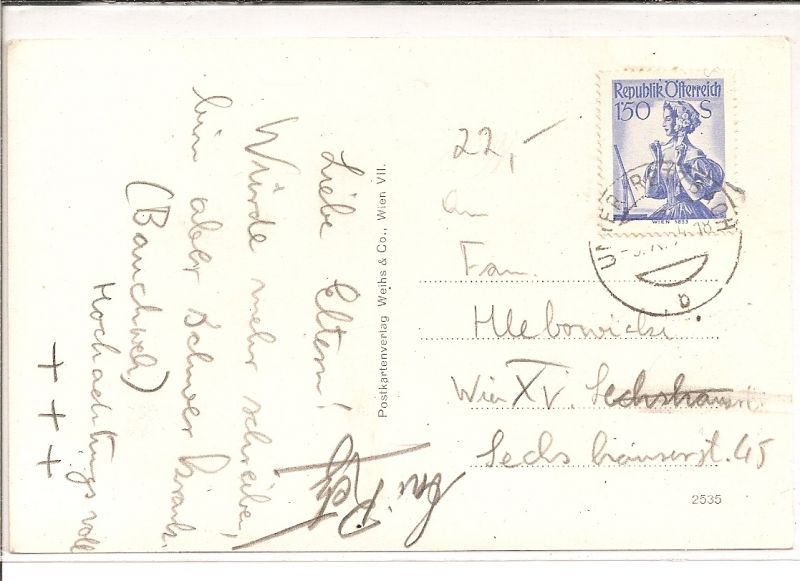 Liebe Eltern!
Würde mehr schreiben,
bin aber schwer krank.
(Bauchweh)
Hochachtungsvoll
+ + +
Postkartenverlag Weihs & Co., Wien VII.
Republik Österreich
1'50 S
WIEN 1853
UNTER
22,-
An
Fam.
Wien XV. Sechshauserst.
Sechshauserst. 45
2535